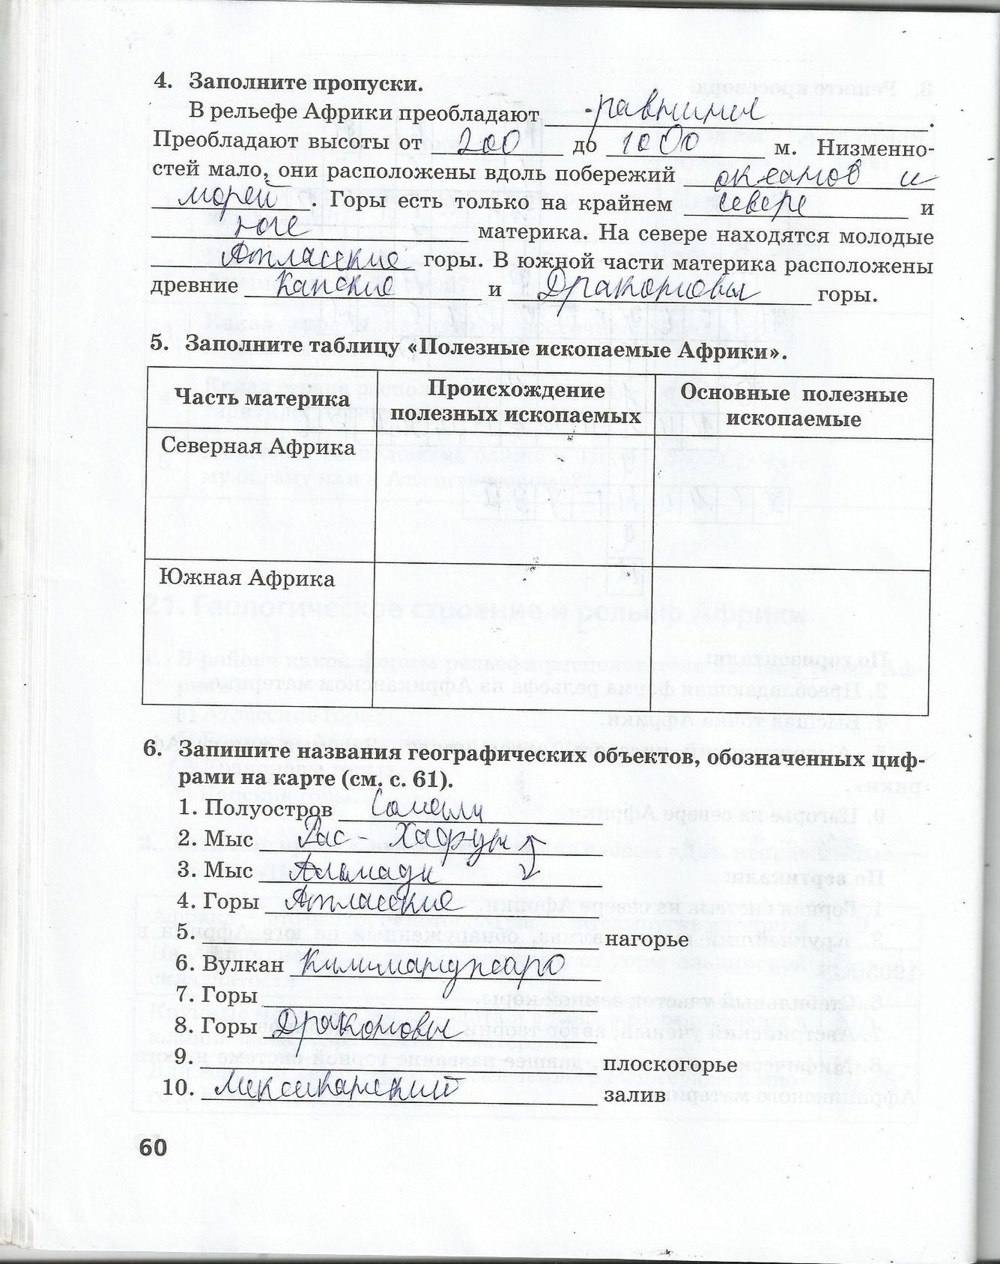 4. Заполните пропуски.
В рельефе Африки преобладают равнины.
Преобладают высоты от 200 до 1000 м. Низменно-
стей мало, они расположены вдоль побережий океанов и
морей. Горы есть только на крайнем севере и
юге материка. На севере находятся молодые
Атласские горы. В южной части материка расположены
древние Капские и Драконовы горы.
5. Заполните таблицу «Полезные ископаемые Африки».
Часть материка Происхождение полезных ископаемых Основные полезные ископаемые
Северная Африка
Южная Африка
6. Запишите названия географических объектов, обозначенных циф-
рами на карте (см. с. 61).
1. Полуостров Сомали
2. Мыс Рас-Хафун
3. Мыс Альмади
4. Горы Атласские
5. нагорье
6. Вулкан Килиманджаро
7. Горы
8. Горы Драконовы
9. плоскогорье
10. Мексиканский залив
60